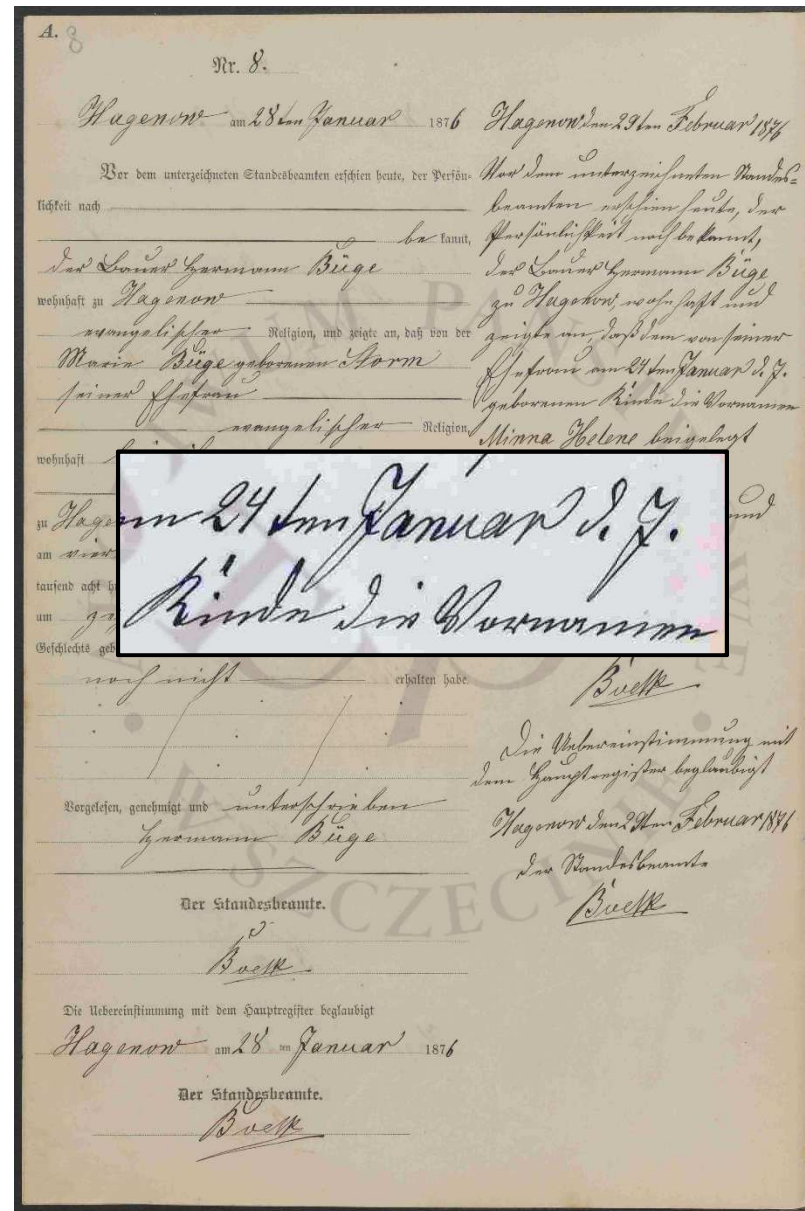 A. 8
Nr. 8.
Hagenow am 28ten Januar 1876
Vor dem unterzeichneten Standesbeamten erschien heute, der Persön-
lichkeit nach
be kannt,
der Bauer Hermann Büge
wohnhaft zu Hagenow
evangelischer Religion, und zeigte an, daß von der
Marie Büge geborenen Storm
seiner Ehefrau
evangelischer Religion,
wohnhaft
zu Hage
am vier
tausend acht h
um
Geschlechts geb
noch nicht erhalten habe.
Vorgelesen, genehmigt und unterschrieben
Hermann Büge
Der Standesbeamte.
Die Uebereinstimmung mit dem Hauptregister beglaubigt
Hagenow am 28 ten Januar 1876
Der Standesbeamte.
Hagenow den 29ten Februar 1876
Vor dem unterzeichneten Standes=
beamten erschien heute, der
Persönlichkeit nach bekannt,
der Bauer Hermann Büge
zu Hagenow, wohnhaft und
zeigte an, daß dem von seiner
Ehefrau am 24ten Januar d. J.
geborenen Kinde die Vornamen
Minna Helene beigelegt
und
Die Uebereinstimmung mit
dem Hauptregister beglaubigt
Hagenow den 29ten Februar 1876
Der Standesbeamte
24ten Januar d. J.
Kinde die Vornamen
W SZCZECINIE